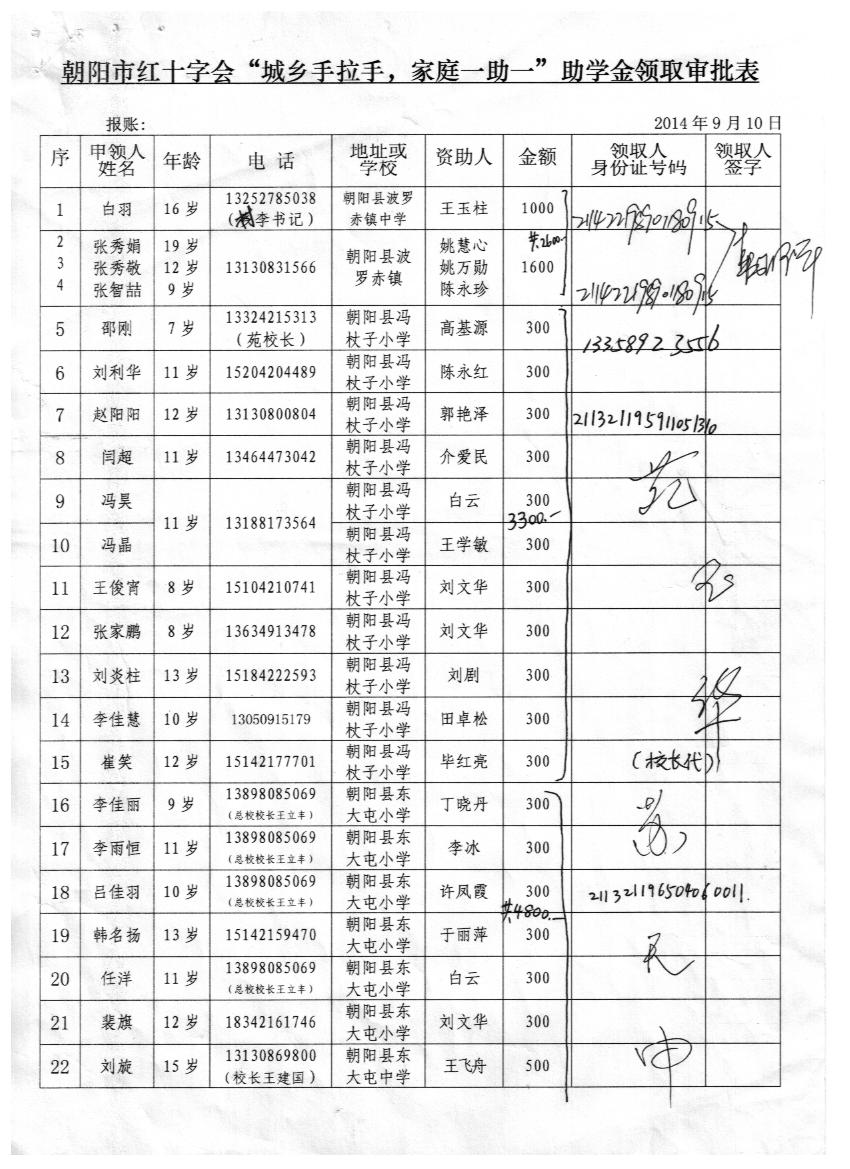 朝阳市红十字会“城乡手拉手，家庭一助一”助学金领取审批表
报账: 2014年9月10日
序 申领人姓名 年龄 电 话 地址或学校 资助人 金额 领取人身份证号码 领取人签字
1 白羽 16岁 13252785038 (村李书记) 朝阳县波罗赤镇中学 王玉柱 1000
共2600-
2 张秀娟 19岁 姚慧心
3 张秀敬 12岁 13130831566 朝阳县波罗赤镇 姚万勋 1600
4 张智喆 9岁 陈永珍
5 邵刚 7岁 13324215313 (苑校长) 朝阳县冯杖子小学 高基源 300 13358923556
6 刘利华 11岁 15204204489 朝阳县冯杖子小学 陈永红 300
7 赵阳阳 12岁 13130800804 朝阳县冯杖子小学 郭艳泽 300 211321195911051310
8 闫超 11岁 13464473042 朝阳县冯杖子小学 介爱民 300
9 冯昊 11岁 13188173564 朝阳县冯杖子小学 白云 300
3300.-
10 冯晶 朝阳县冯杖子小学 王学敏 300
11 王俊宵 8岁 15104210741 朝阳县冯杖子小学 刘文华 300
12 张家鹏 8岁 13634913478 朝阳县冯杖子小学 刘文华 300
13 刘炎柱 13岁 15184222593 朝阳县冯杖子小学 刘剧 300
14 李佳慧 10岁 13050915179 朝阳县冯杖子小学 田卓松 300
15 崔笑 12岁 15142177701 朝阳县冯杖子小学 毕红亮 300 (校长代)
16 李佳丽 9岁 13898085069 (总校校长王立丰) 朝阳县东大屯小学 丁晓丹 300
17 李雨恒 11岁 13898085069 (总校校长王立丰) 朝阳县东大屯小学 李冰 300
18 吕佳羽 10岁 13898085069 (总校校长王立丰) 朝阳县东大屯小学 许凤霞 300 211321196504060011.
共4800.-
19 韩名扬 13岁 15142159470 朝阳县东大屯小学 于丽萍 300
20 任洋 11岁 13898085069 (总校校长王立丰) 朝阳县东大屯小学 白云 300
21 裴旗 12岁 18342161746 朝阳县东大屯小学 刘文华 300
22 刘旋 15岁 13130869800 (校长王建国) 朝阳县东大屯中学 王飞舟 500